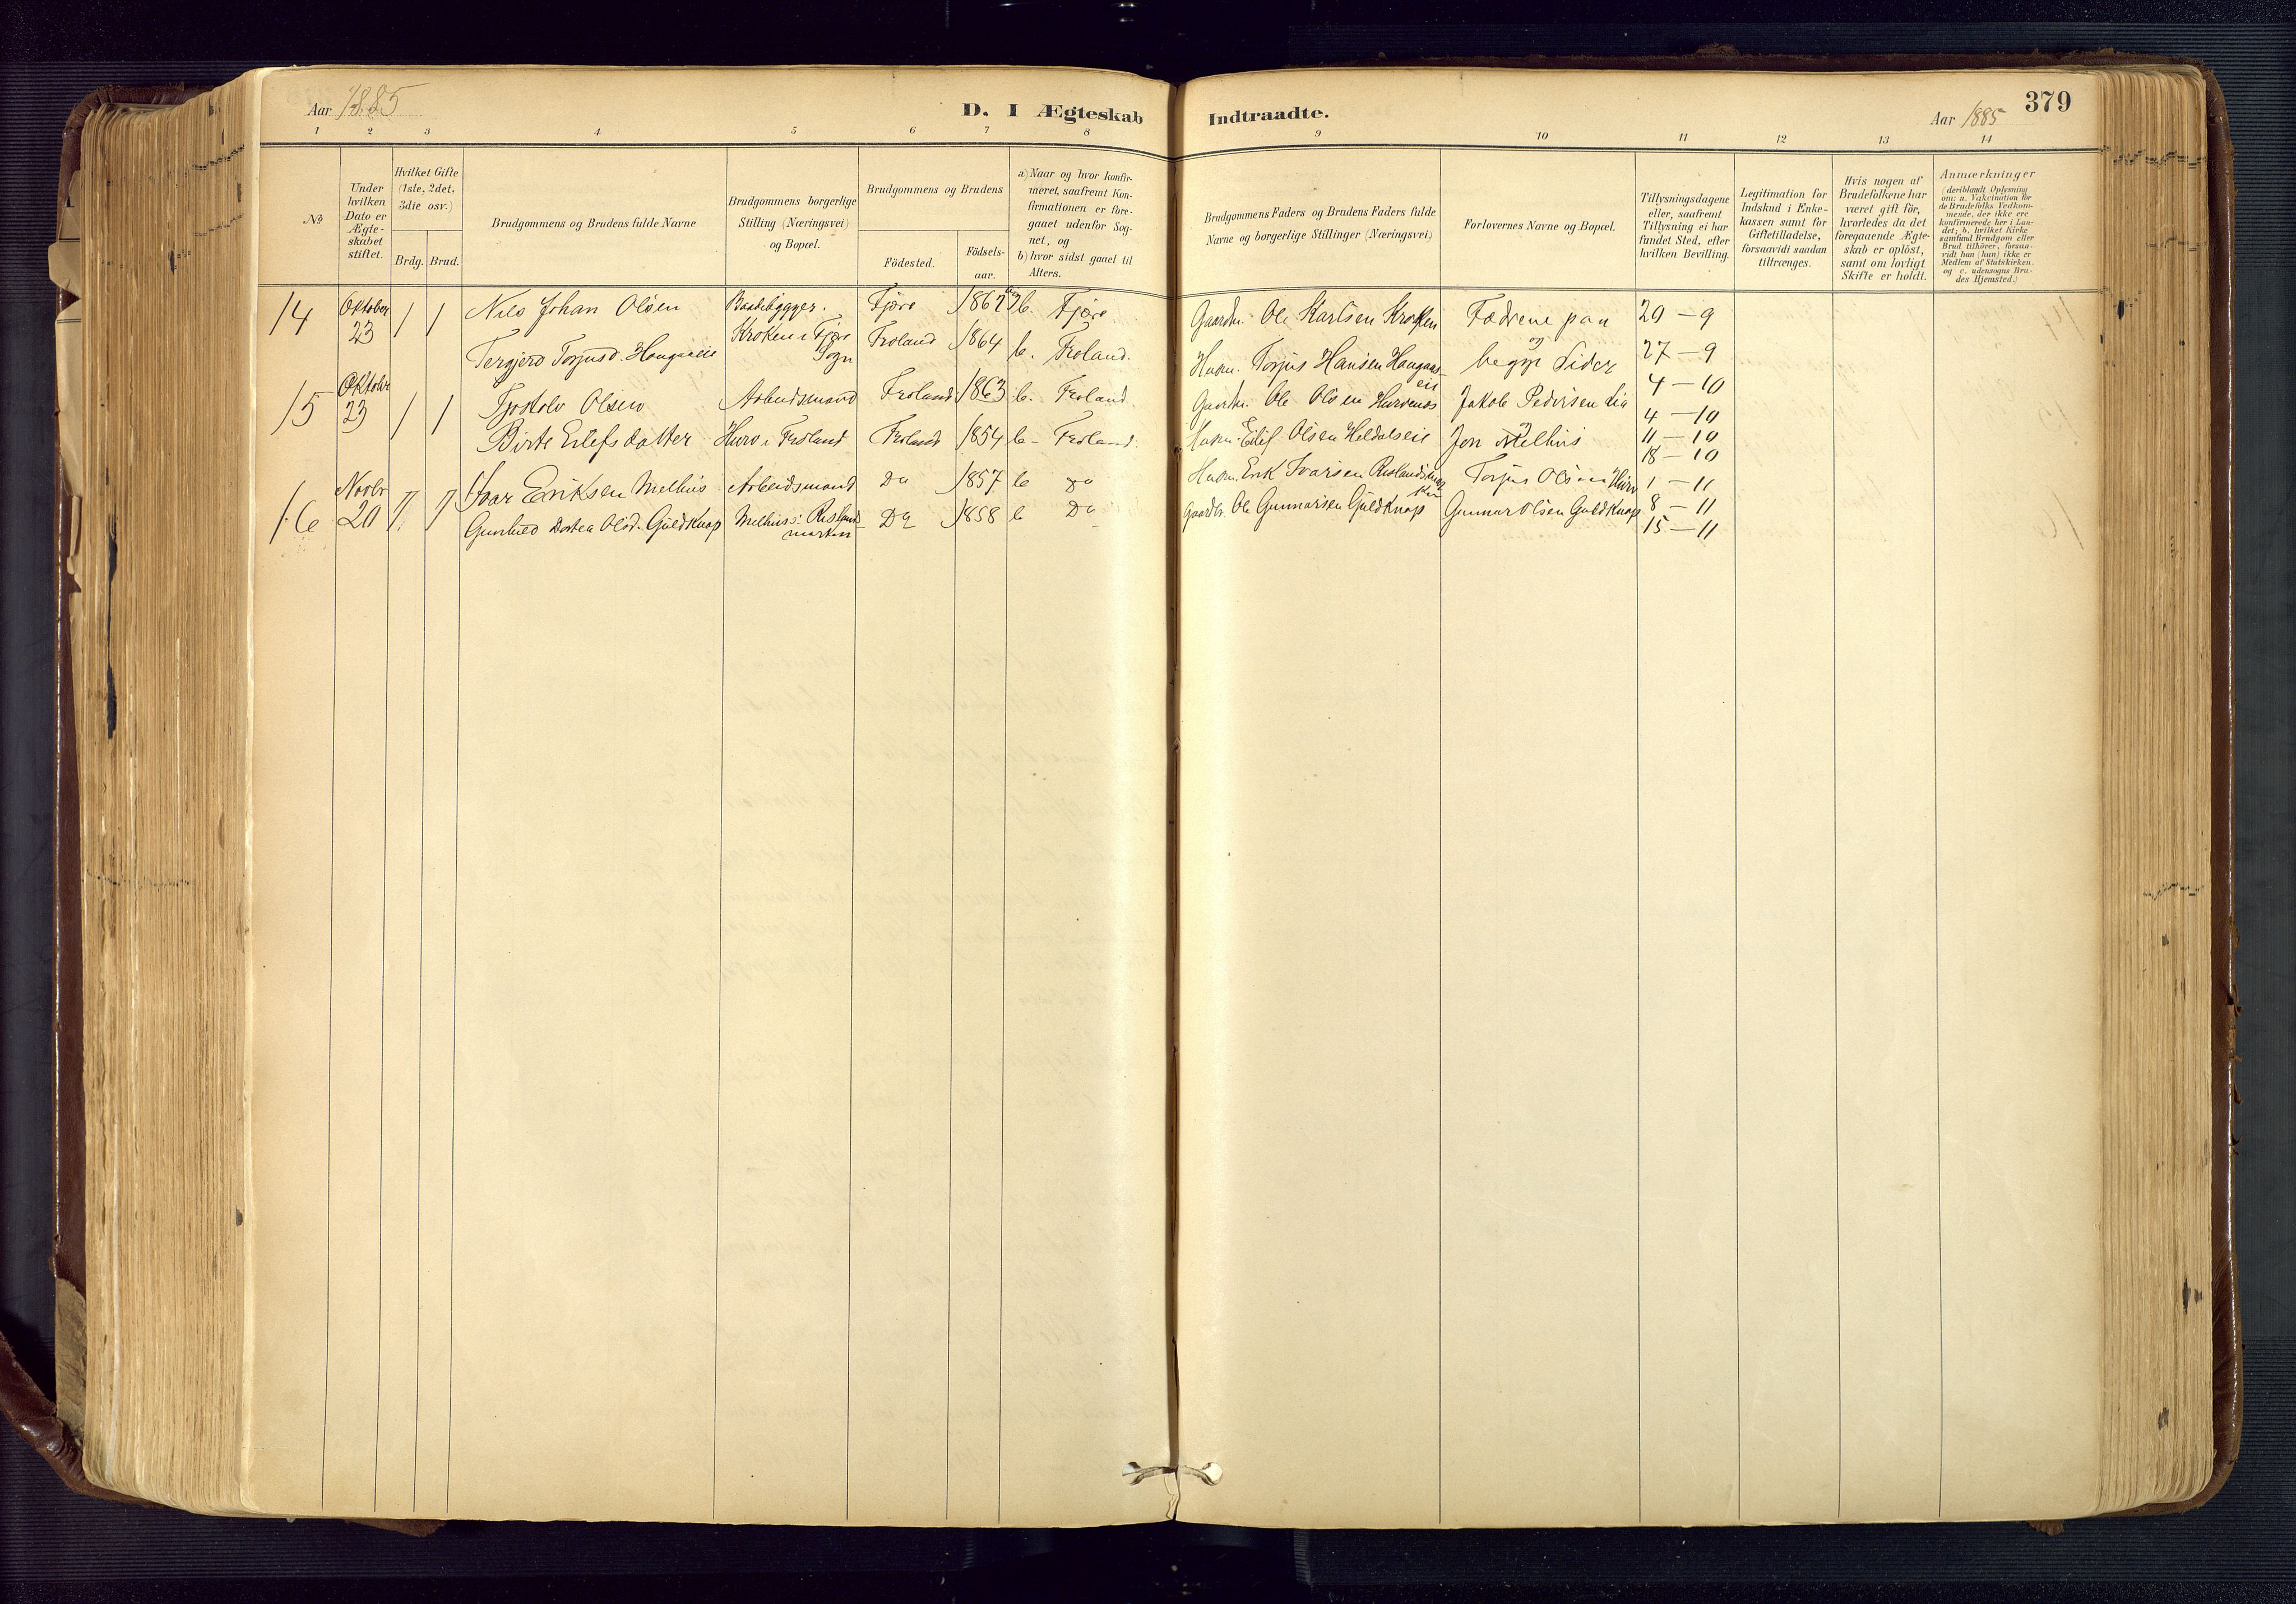 Aar 1885
D. I Ægteskab
Indtraadte.
Aar 1885
379
1 2 3 4 5 6 7 8
9 10 11 12 13 14
№
Under
hvilken
Dato er
Ægte-
skabet
stiftet.
Hvilket Gifte
(1ste, 2det,
3die osv.)
Brdg. Brud.
Brudgommens og Brudens fulde Navne
Brudgommens borgerlige
Stilling (Næringsvei)
og Bopæl.
Brudgommens og Brudens
Födested.
Födsels-
aar.
a) Naar og hvor konfir-
meret, saafremt Kon-
firmationen er fore-
gaaet udenfor Sog-
net, og
b) hvor sidst gaaet til
Alters.
Brudgommens Faders og Brudens Faders fulde
Navne og borgerlige Stillinger (Næringsvei)
Forlovernes Navne og Bopæl.
Tillysningsdagene
eller, saafremt
Tillysning ei har
fundet Sted, efter
hvilken Bevilling.
Legitimation for
Indskud i Enke-
kassen samt for
Giftetilladelse,
forsaavidt saadan
tiltrænges.
Hvis nogen af
Brudefolkene har
været gift för,
hvorledes da det
foregaaende Ægte-
skab er oplöst,
samt om lovligt
Skifte er holdt.
Anmærkninger
(deriblandt Oplysning
om: a. Vakcination for
de Brudefolks Vedkom-
mende, der ikke ere
konfirmerede her i Lan-
det; b. hvilket Kirke
samfund Brudgom eller
Brud tilhörer, forsaa-
vidt han (hun) ikke er
Medlem af Statskirken.
og c. udensogns Bru-
des Hjemsted.)
14 Oktober 23 1 1 Nils Johan Olsen Baadebygger. Fjære 1862 b. Fjære. Gaardm. Ole Karlsen Kroken Fædrene paa 20 — 9
Tergjerd Torjusd. Haugaaseie Kroken i Fjære Sogn Froland 1864 b. Froland. Husm. Torjus Hansen Haugaas- eie begge Sider 27 — 9
4 — 10
15 Oktober 23 1 1 Tjostolv Olsen Arbeidsmand Froland 1863 b. Froland Gaardm. Ole Olsen Jakob Pedersen Lia 4 — 10
og
Birte Eilefsdatter Hurv i Froland Froland 1854 b — Froland. Husm. Eilef Olsen Heldalseie Jon Melhus 11 — 10
18 — 10
16 Novbr 20 1 1 Ivar Eriksen Melhus Arbeidsmand Do 1857 b Do Husm. Erik Ivarsen Torjus Olsen Hurv 1 — 11
Gunhild Dortea Olsd. Guldknap Melhus i Risland- marken Do 1858 b Do Gaardbr. Ole Gunnarsen Guldknap Gunnar Olsen Guldknap 8 — 11
15 — 11